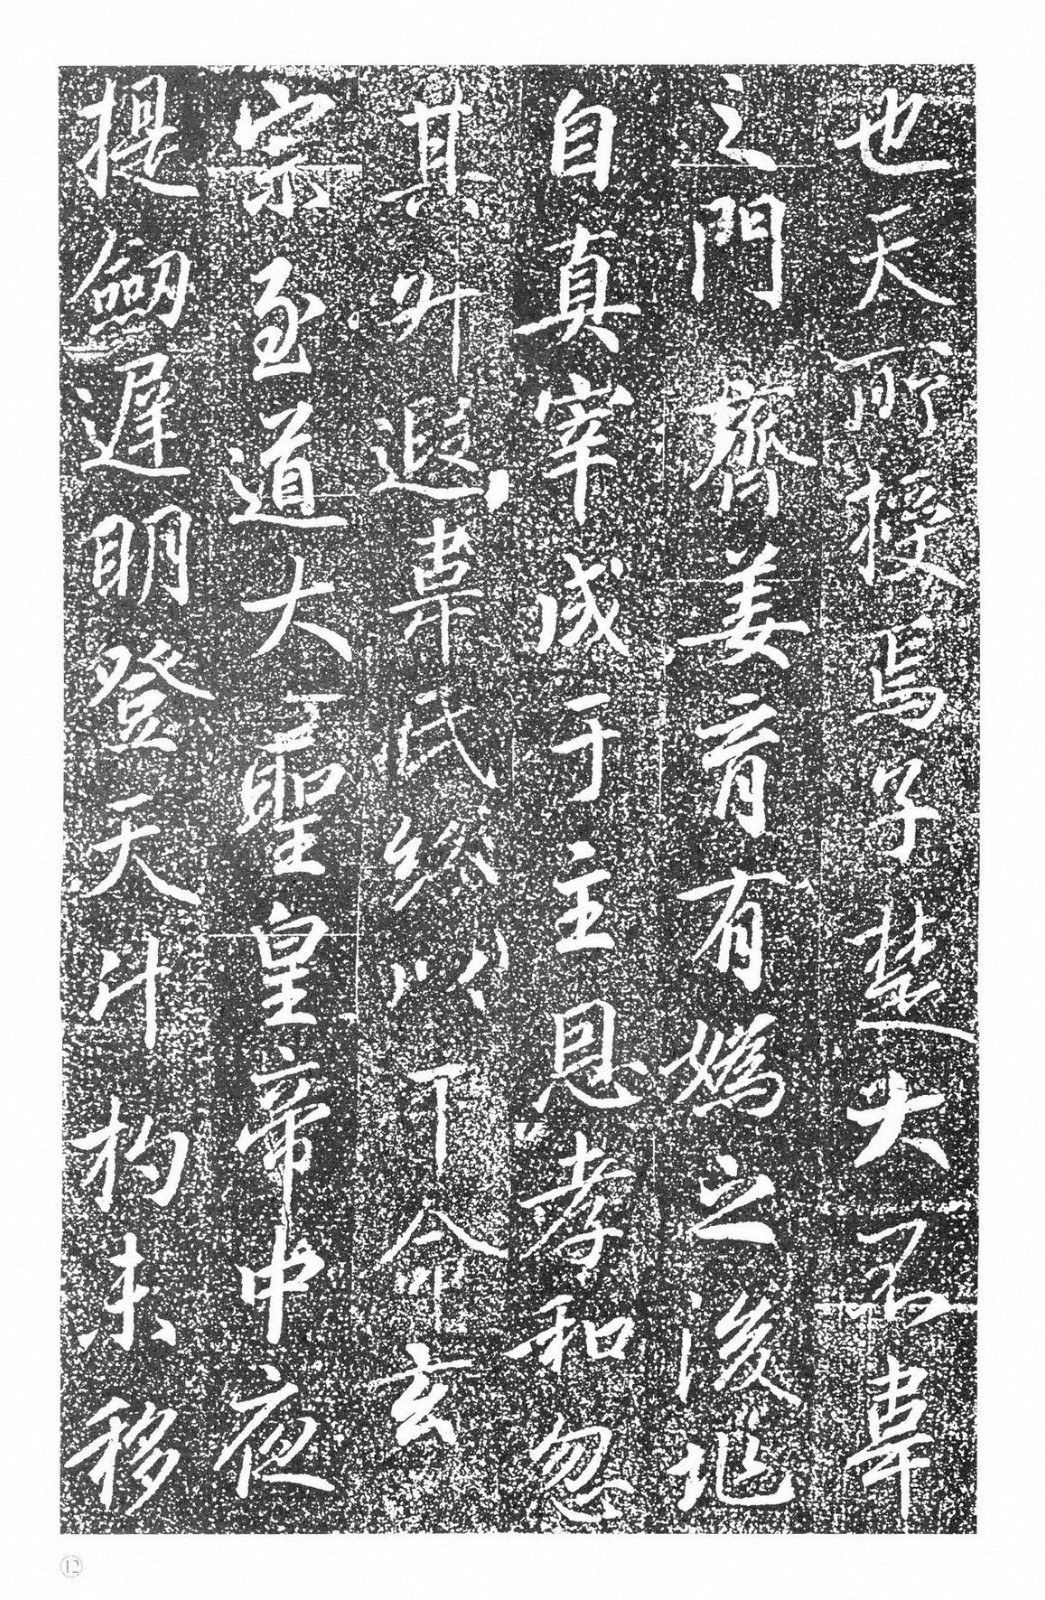 也天所授焉子楚大不韋
之門齊姜育有媯之後地
自真宰成于主恩孝和忽
其升遐韋氏總以下命玄
宗至道大聖皇帝中夜
提劔遲明登天斗杓未移
12